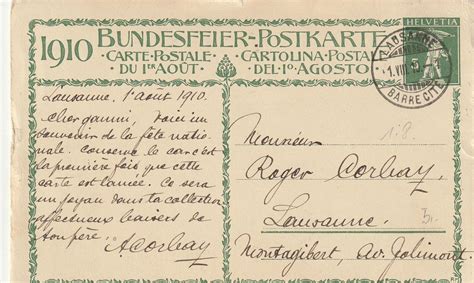 1910 BUNDESFEIER-POSTKARTE
CARTE-POSTALE CARTOLINA-POSTALE
DU 1ER AOÛT. DEL 1O AGOSTO
HELVETIA
5
LAUSANNE
1.VIII.10
BARRE CITÉ
Lausanne, 1 août 1910.
Cher gamin, Voici un
souvenir de la fête natio-
nale. Conserve le car c'est
la première fois que cette
carte est lancée. Ce sera
un joyau dans ta collection
affectueux baisers de
ton père. A. Corbay
Monsieur
Roger Corbay
Lausanne.
Montagibert, Av. Jolimont.
1.8.